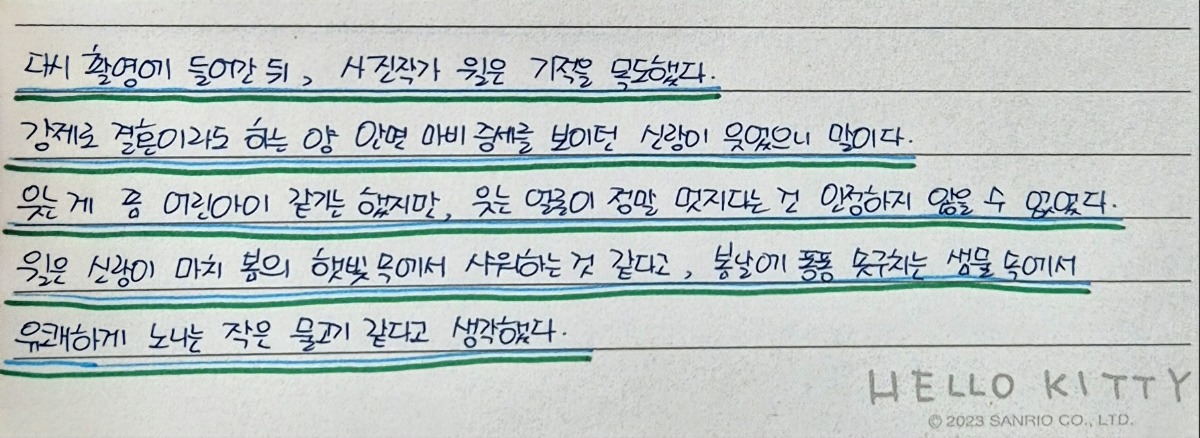 다시 촬영에 들어간 뒤, 사진작가 윌은 기적을 목도했다.
강제로 결혼이라도 하는 양 안면 마비 증세를 보이던 신랑이 웃었으니 말이다.
웃는 게 좀 어린아이 같기는 했지만, 웃는 얼굴이 정말 멋지다는 건 인정하지 않을 수 없었다.
윌은 신랑이 마치 봄의 햇빛 속에서 샤워하는 것 같다고, 봄날에 퐁퐁 솟구치는 샘물 속에서
유쾌하게 노니는 작은 물고기 같다고 생각했다.
HELLO KITTY
© 2023 SANRIO CO., LTD.